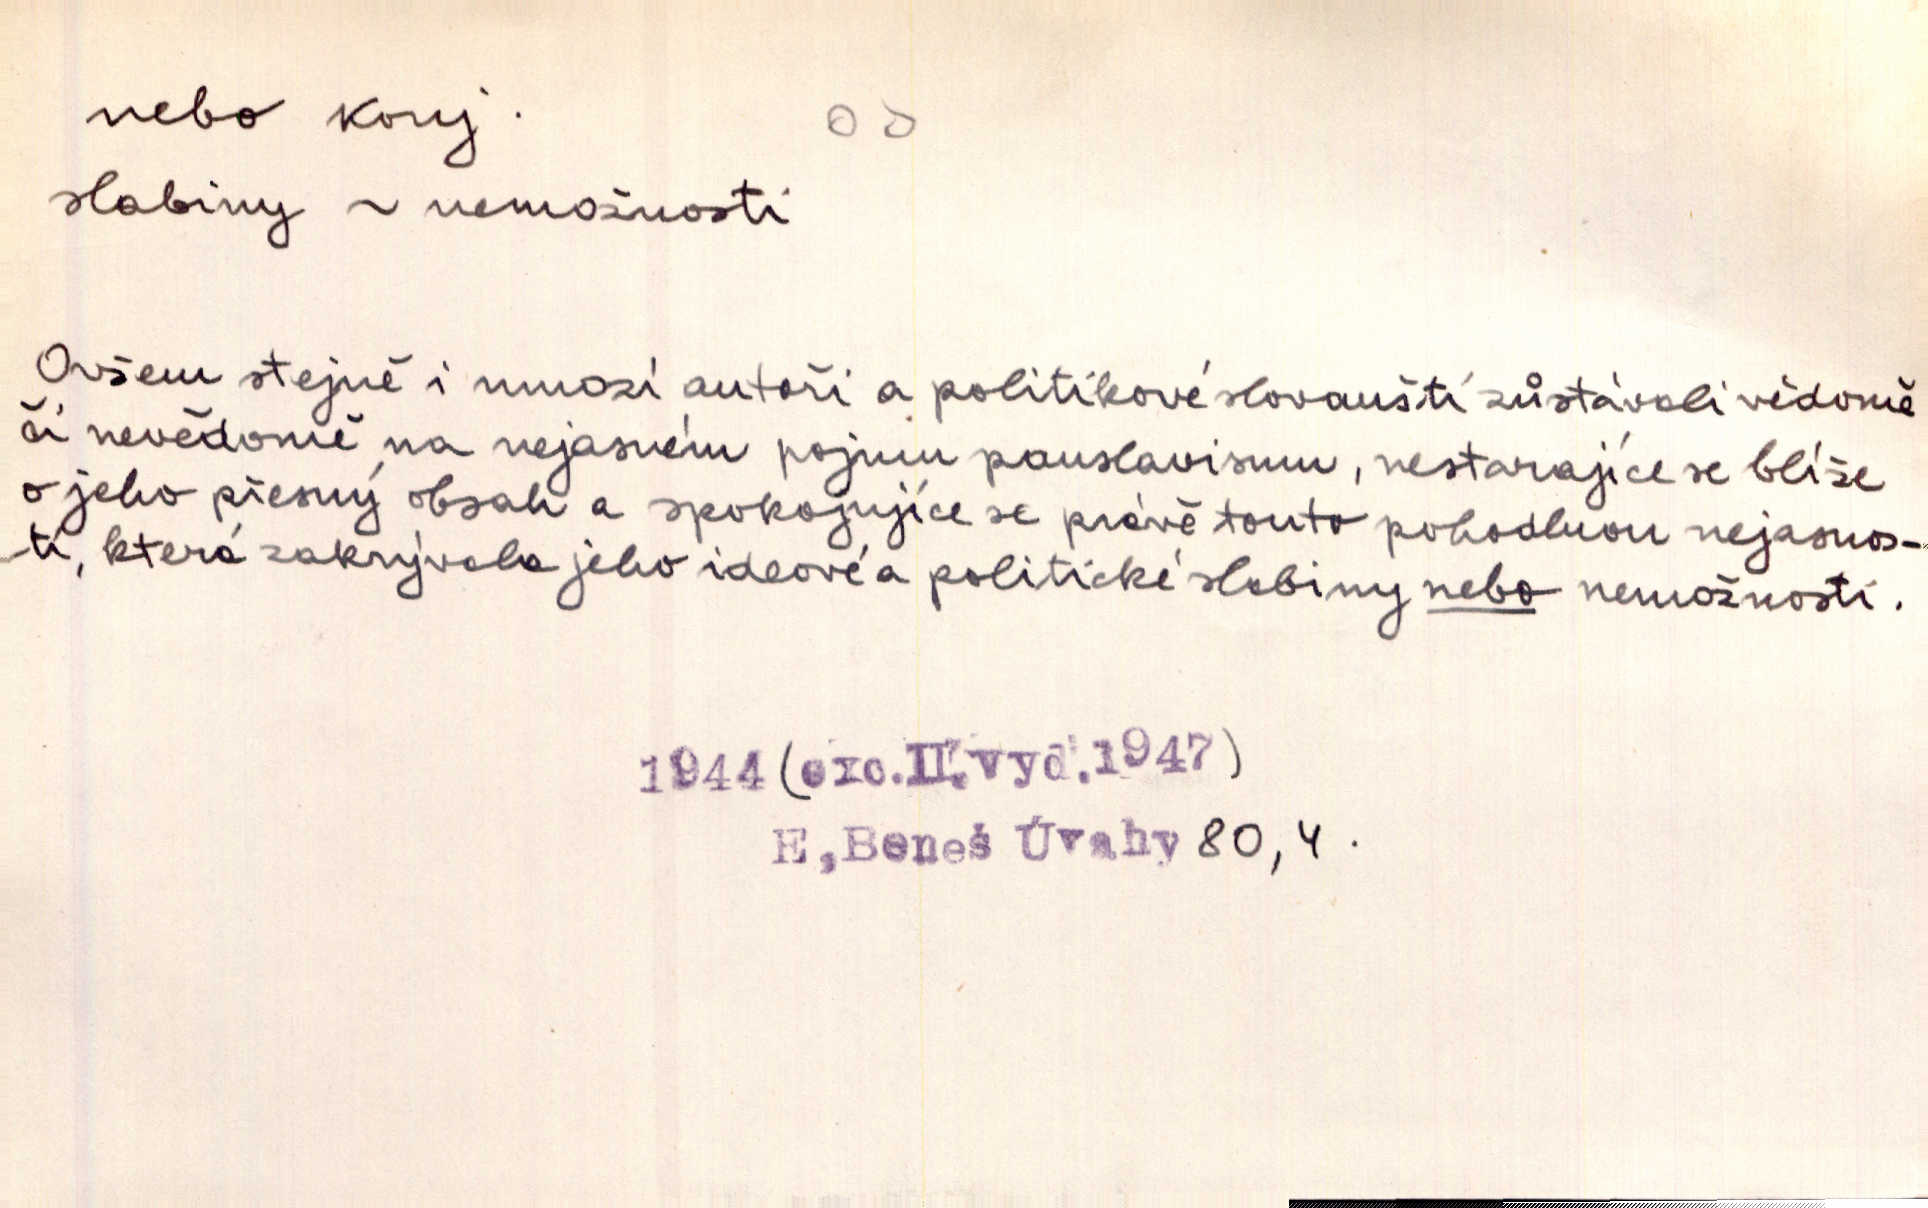 nebo konj.
slabiny ~ nemožnosti
Ovšem stejně i mnozí autoři a politikové slovanští zůstávali vědomě
či nevědomě na nejasném pojmu panslavismu, nestarajíce se blíže
o jeho přesný obsah a spokojujíce se právě touto pohodlnou nejasnos-
ti, která zakrývala jeho ideové a politické slabiny nebo nemožnosti.
1944 (exc. II. vyd. 1947)
E. Beneš Úvahy 80,4.